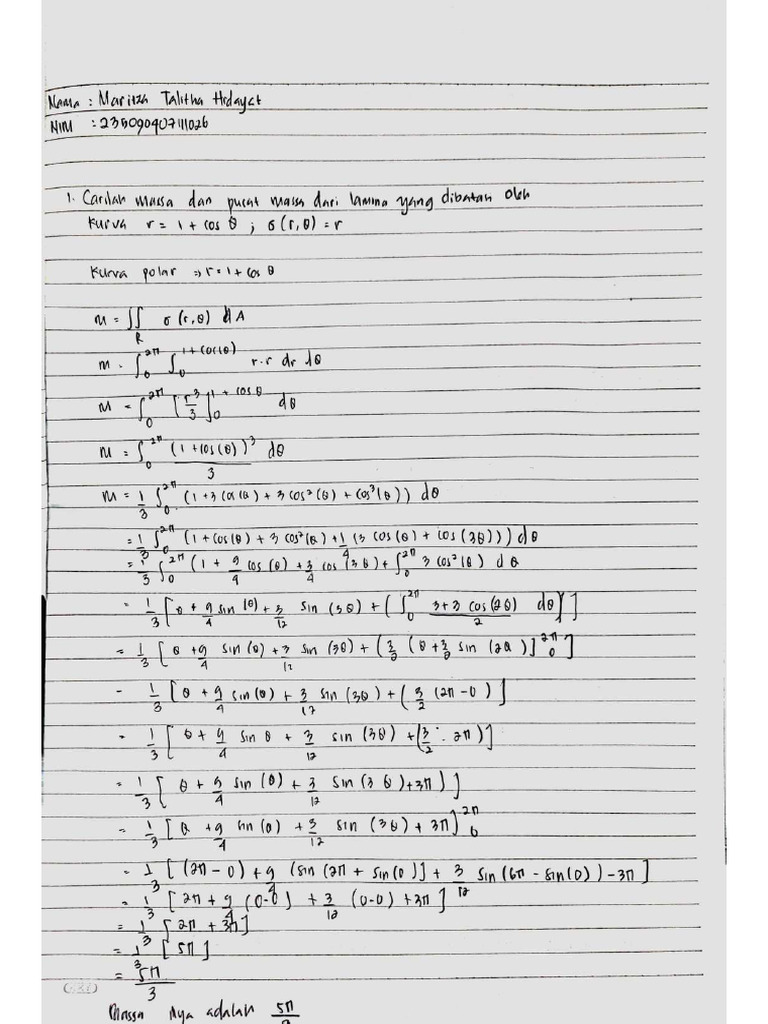 Nama : Maritza Talitha Hidayat
NIM : 235090407111026
1. Carilah massa dan pusat massa dari lamina yang dibatasi oleh
kurva r = 1 + cos θ ; σ(r,θ) = r
Kurva polar ⇒ r = 1 + cos θ
M = ∬_R σ(r,θ) dA
M = ∫₀^2π ∫₀^1+cos(θ) r·r dr dθ
M = ∫₀^2π [r³/3]₀^1+cos θ dθ
M = ∫₀^2π (1+cos(θ))³/3 dθ
M = 1/3 ∫₀^2π (1+3 cos(θ) + 3 cos²(θ) + cos³(θ)) dθ
= 1/3 ∫₀^2π (1 + cos(θ) + 3 cos²(θ) + 1/4 (3 cos(θ) + cos(3θ))) dθ
= 1/3 ∫₀^2π (1 + 9/4 cos(θ) + 3/4 cos(3θ) + ∫₀^2π 3 cos²(θ) dθ
= 1/3 [θ + 9/4 sin(θ) + 3/12 sin(3θ) + (∫₀^2π 3+3 cos(2θ)/2 dθ)]
= 1/3 [θ + 9/4 sin(θ) + 3/12 sin(3θ) + (3/2 (θ + 3/2 sin(2θ)]₀^2π]
- 1/3 [θ + 9/4 sin(θ) + 3/12 sin(3θ) + (3/2 (2π-0)]
= 1/3 [θ + 9/4 sin θ + 3/12 sin(3θ) + (3/2 · 2π)]
= 1/3 [θ + 9/4 sin(θ) + 3/12 sin(3θ) + 3π)]
= 1/3 [θ + 9/4 sin(θ) + 3/12 sin(3θ) + 3π]₀^2π
= 1/3 [(2π-0) + 9/4 (sin(2π + sin(0)] + 3/12 sin(6π - sin(0)) - 3π]
= 1/3 [2π + 9/4 (0-0) + 3/12 (0-0) + 3π]
= 1/3 [2π + 3π]
= 1/3 [5π]
= 5π/3
Massa nya adalah 5π/3